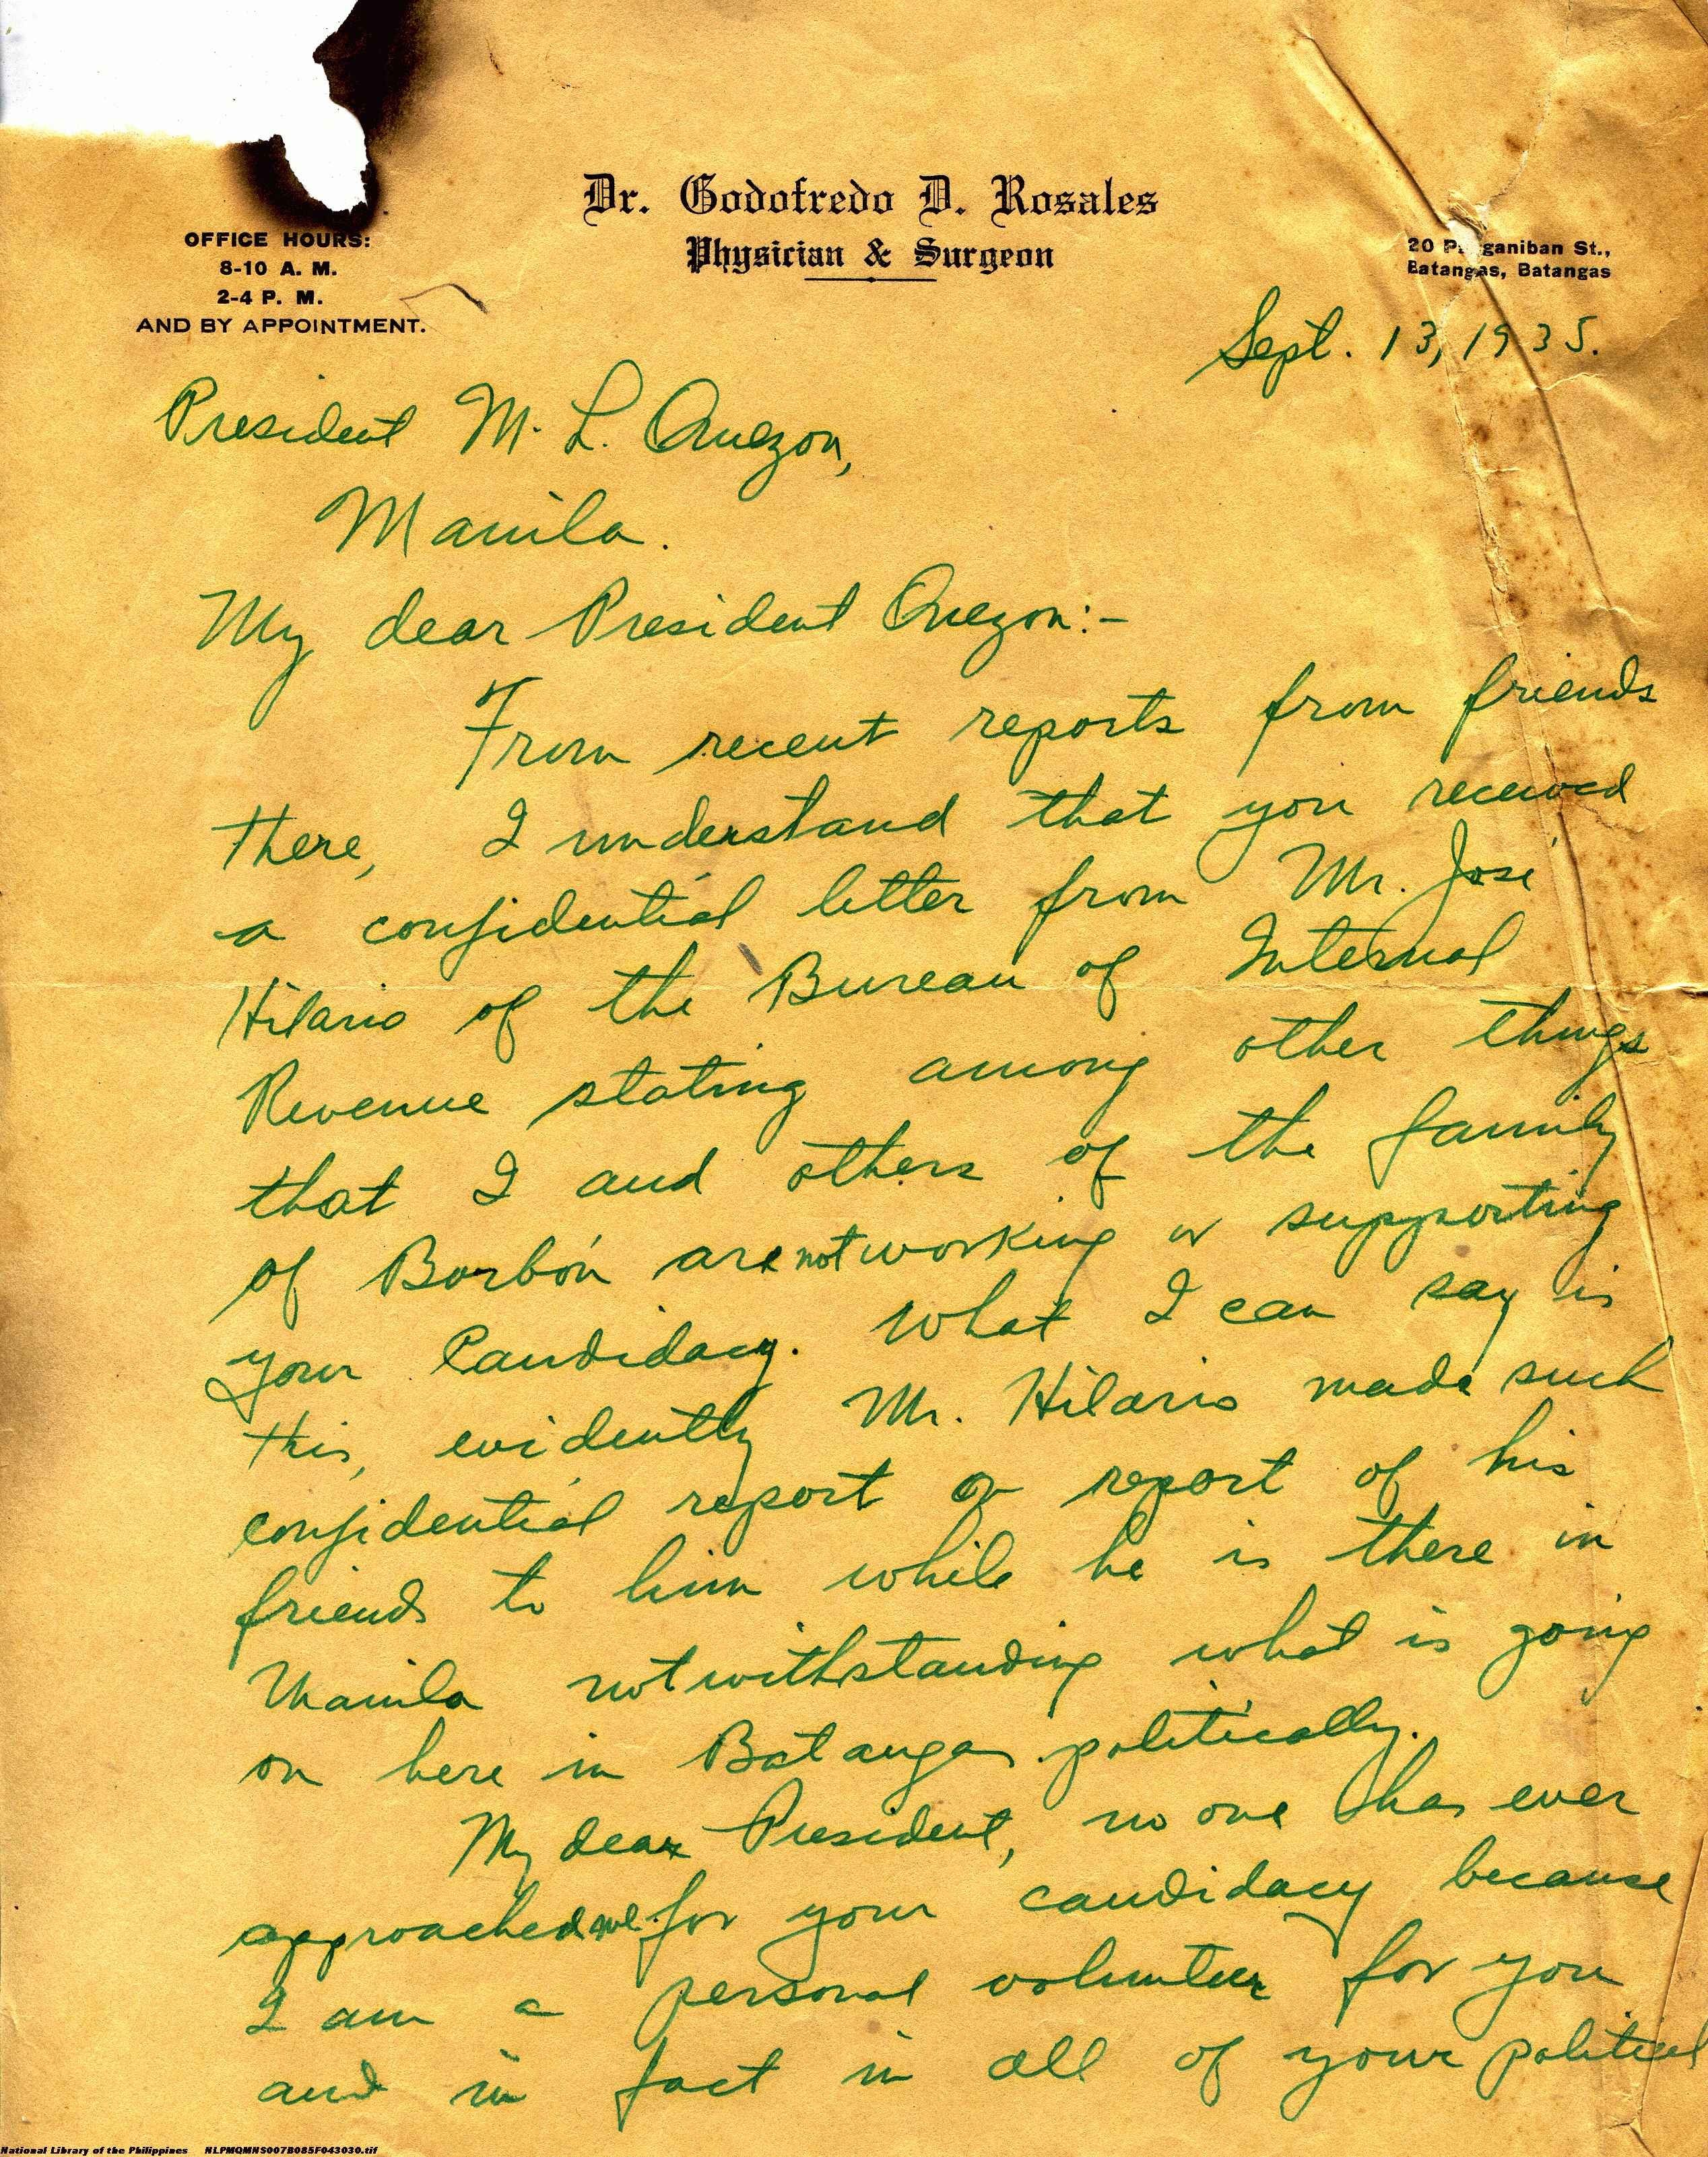 Dr. Godofredo D. Rosales
Physician & Surgeon
OFFICE HOURS:
8-10 A. M.
2-4 P. M.
AND BY APPOINTMENT.
20 P ganiban St.,
Batangas, Batangas
Sept. 13, 1935.
President M. L. Quezon,
Manila.
My dear President Quezon:-
From recent reports from friends
there, I understand that you received
a confidential letter from Mr. José
Hilario of the Bureau of Internal
Revenue stating among other things
that I and others of the family
of Borbón are not working or supporting
your Candidacy. What I can say is
this, evidently Mr. Hilario made such
confidential report on report of his
friends to him while he is there in
Manila notwithstanding what is going
on here in Batangas politically.
My dear President, no one has ever
approached me for your candidacy because
I am a personal volunteer for you
and in fact in all of your political
National Library of the Philippines NLPMQMNS007B085F043030.tif